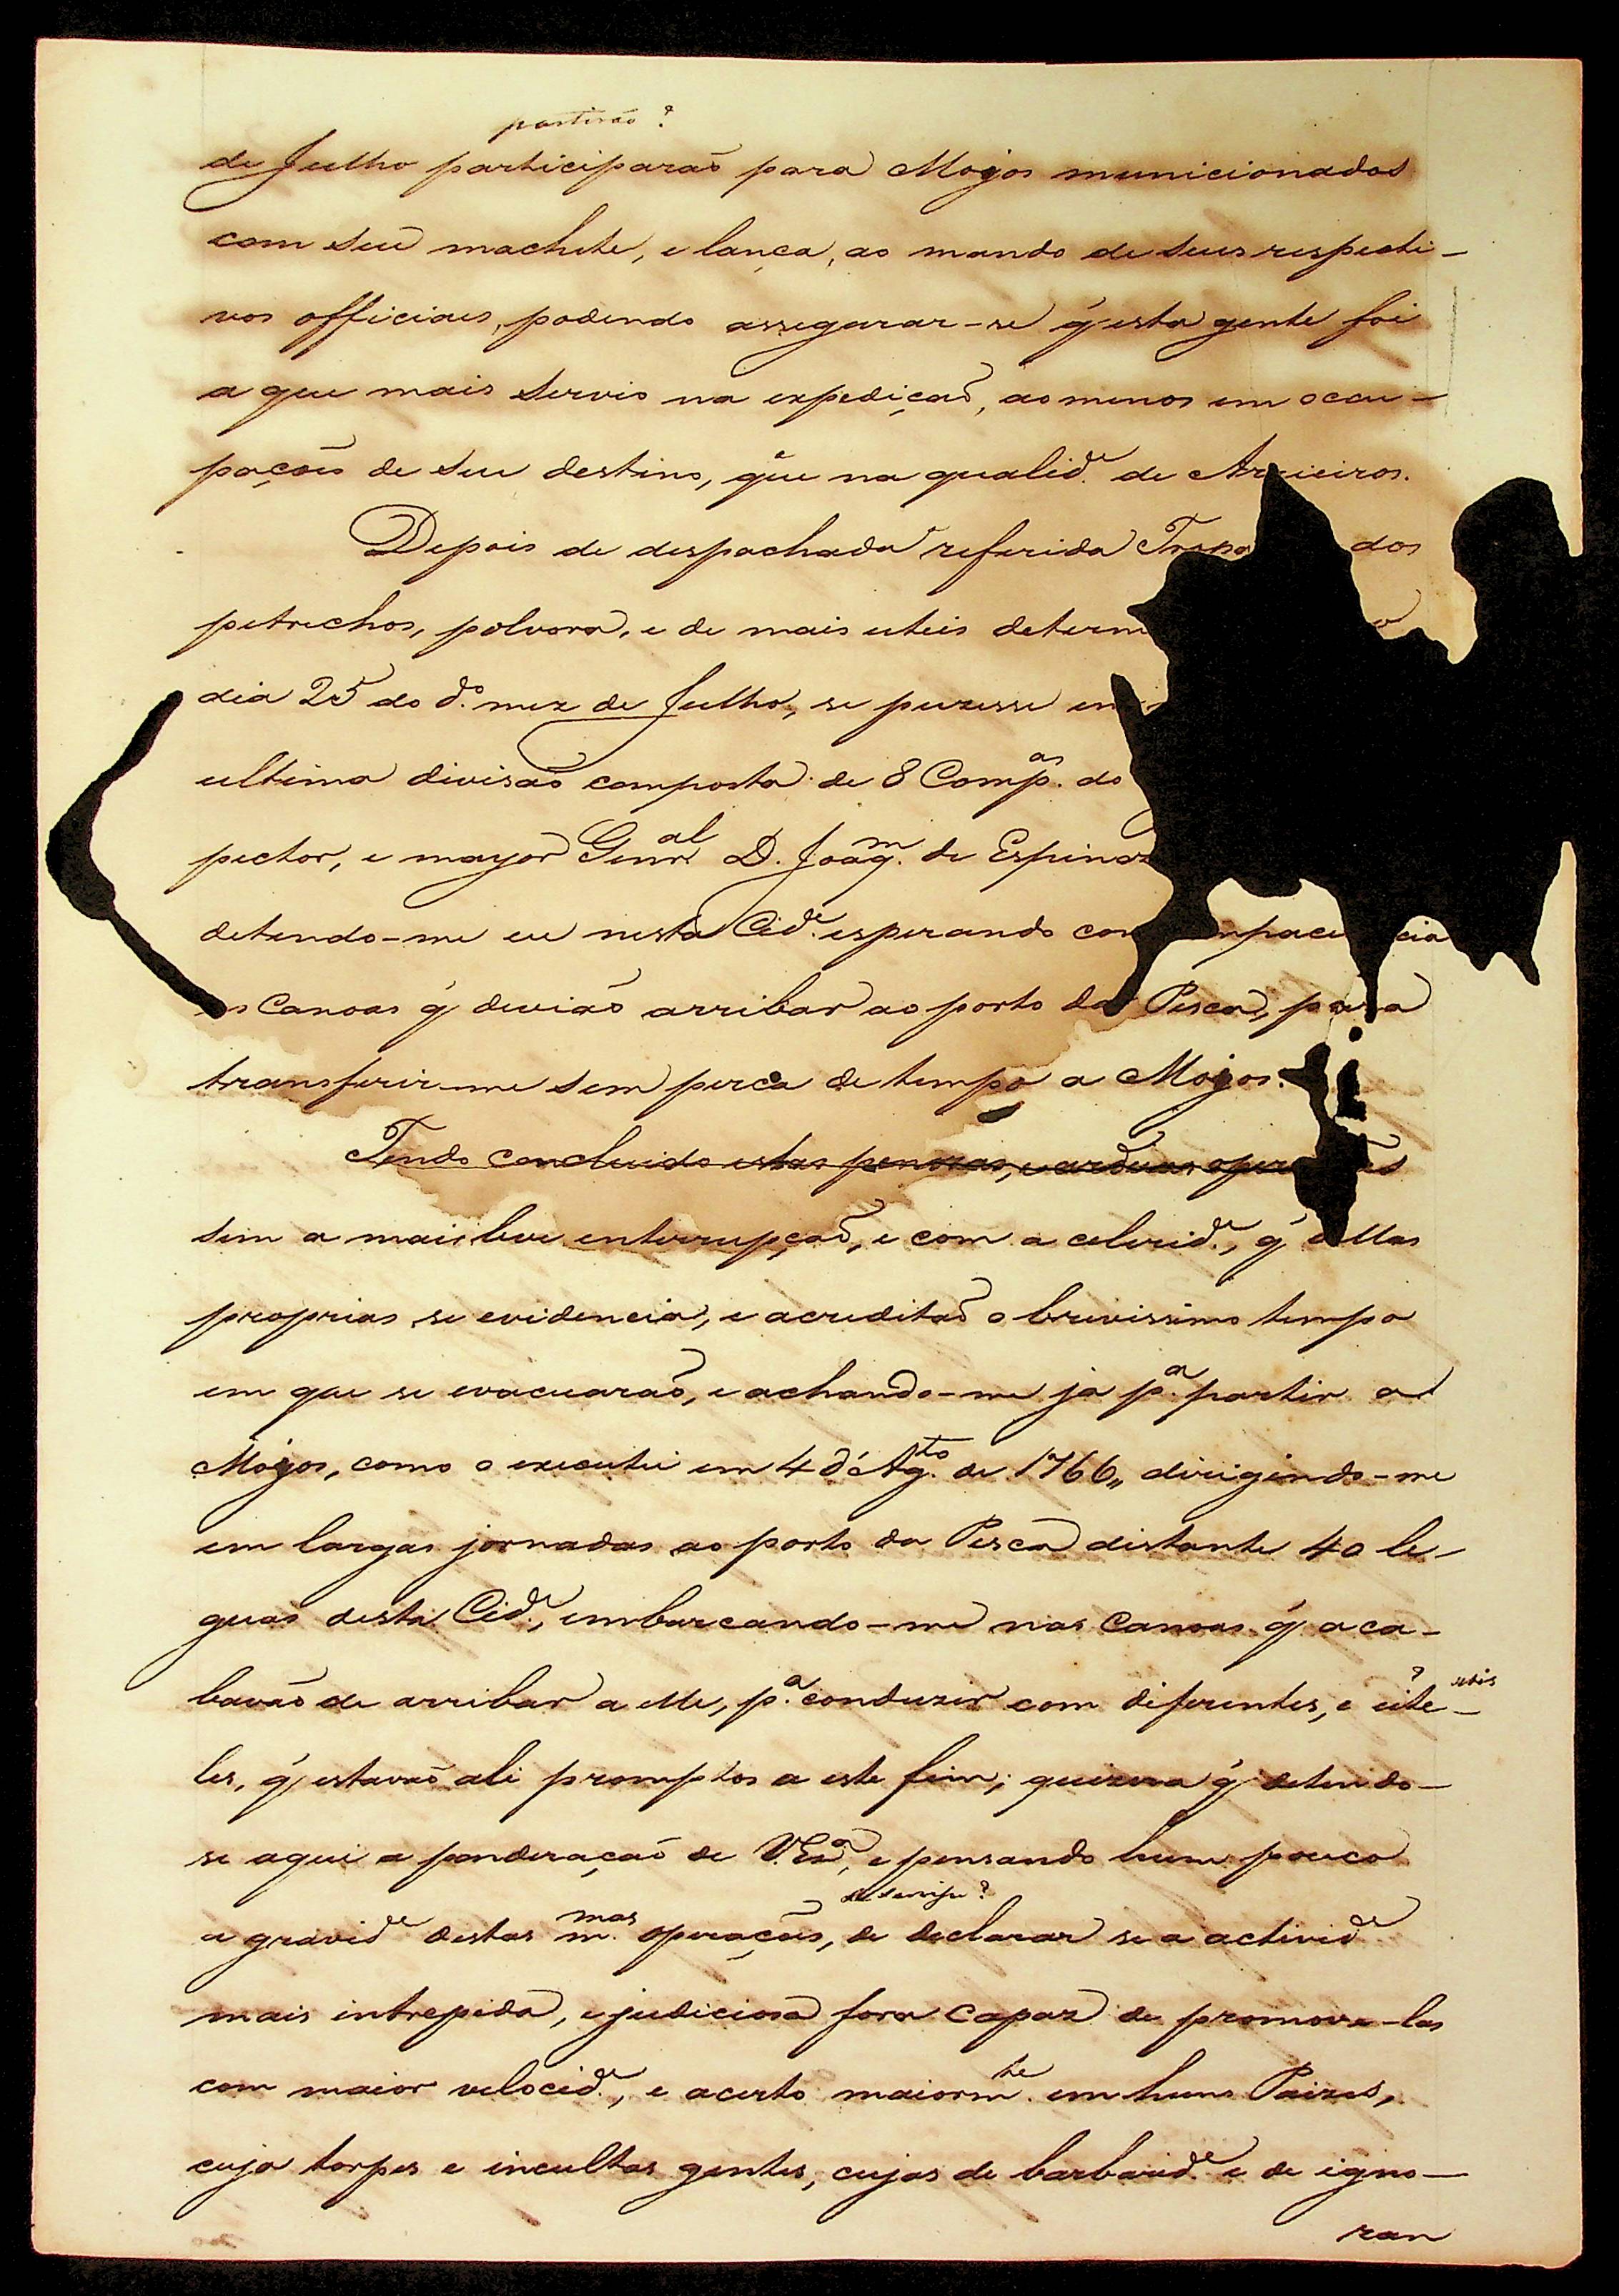 partirão?
de Julho participarão para Mojos municionados
com seu machete, e lança, ao mando de seus respecti-
vos officiaes, podendo assegurar-se q̃ esta gente foi
a que mais servio na expedição, ao menos em occu-
pações de seu destino, que na qualid.e de Arrieiros.
Depois de despachada referida Tropa dos
petrechos, polvora, e de mais uteis determ
dia 25 do d.o mez de Julho, se puzesse em
ultima divisão composta de 8 Comp.as do
pector, e mayor Genr.al D. Joaq.m de Espinoz
detendo-me eu nesta Cid.e esperando com impaci cia
as Canoas q̃ devião arribar ao porto da Pesca, para
transferir-me sem perca de tempo a Mojos.
Tendo concluido estas penozas, e arduas oper es
sem a mais leve enterrupção, e com a celerid.e, q̃ ellas
proprias se evidencia, e acreditão o brevissimo tempo
em que se evacuarão, e achando-me ja p.a partir a
Mojos, como o executei em 4 d'Ag.to de 1766,, dirigindo-me
em largas jornadas ao porto da Pesca distante 40 le-
guas desta Cid.e, embarcando-me nas Canoas q̃ aca-
bavão de arribar a elle, p.a conduzir com diferentes, e úte- uteis?
les, q̃ estavão ali promptos a este fim; quizera q̃ detendo-
se aqui a ponderação de V.Ex.a, e pensando hum pouco
a gravid.e destas m.mas operações, de declarar se a activid.e
mais intrepida, e judiciosa fora capaz de promove-las
com maior velocid.e, e acerto maiorm.te em huns Paizes,
cuja torpes e incultas gentes, cujas de barbarid.e e de igno-
ran